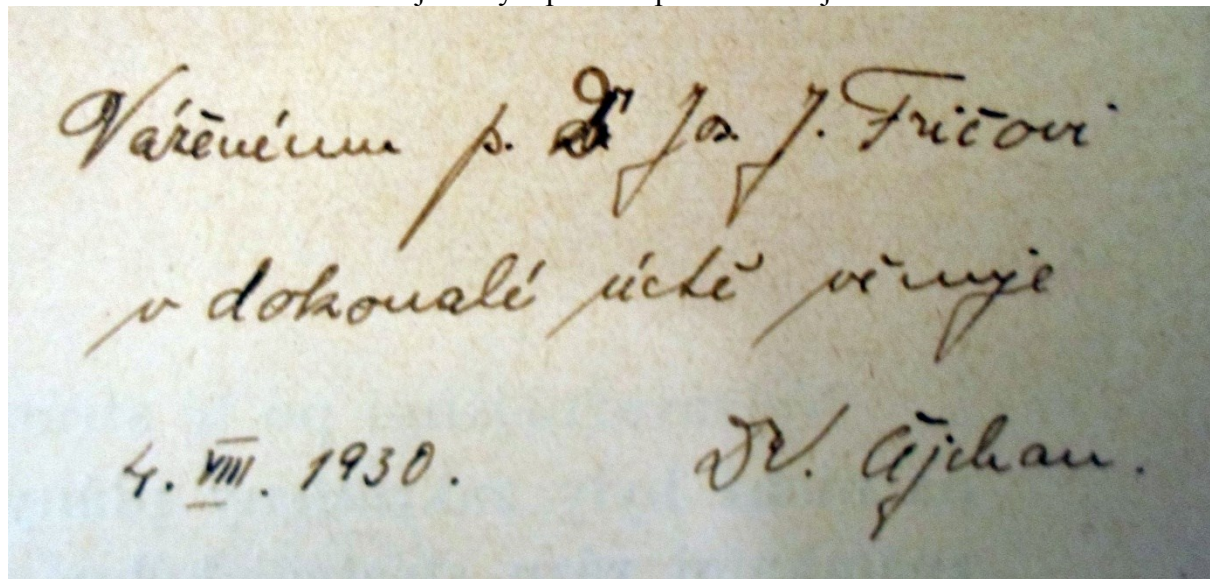 Váženému p. Dr Jos. J. Fričovi
v dokonalé úctě věnuje
4. VIII. 1930. DV.